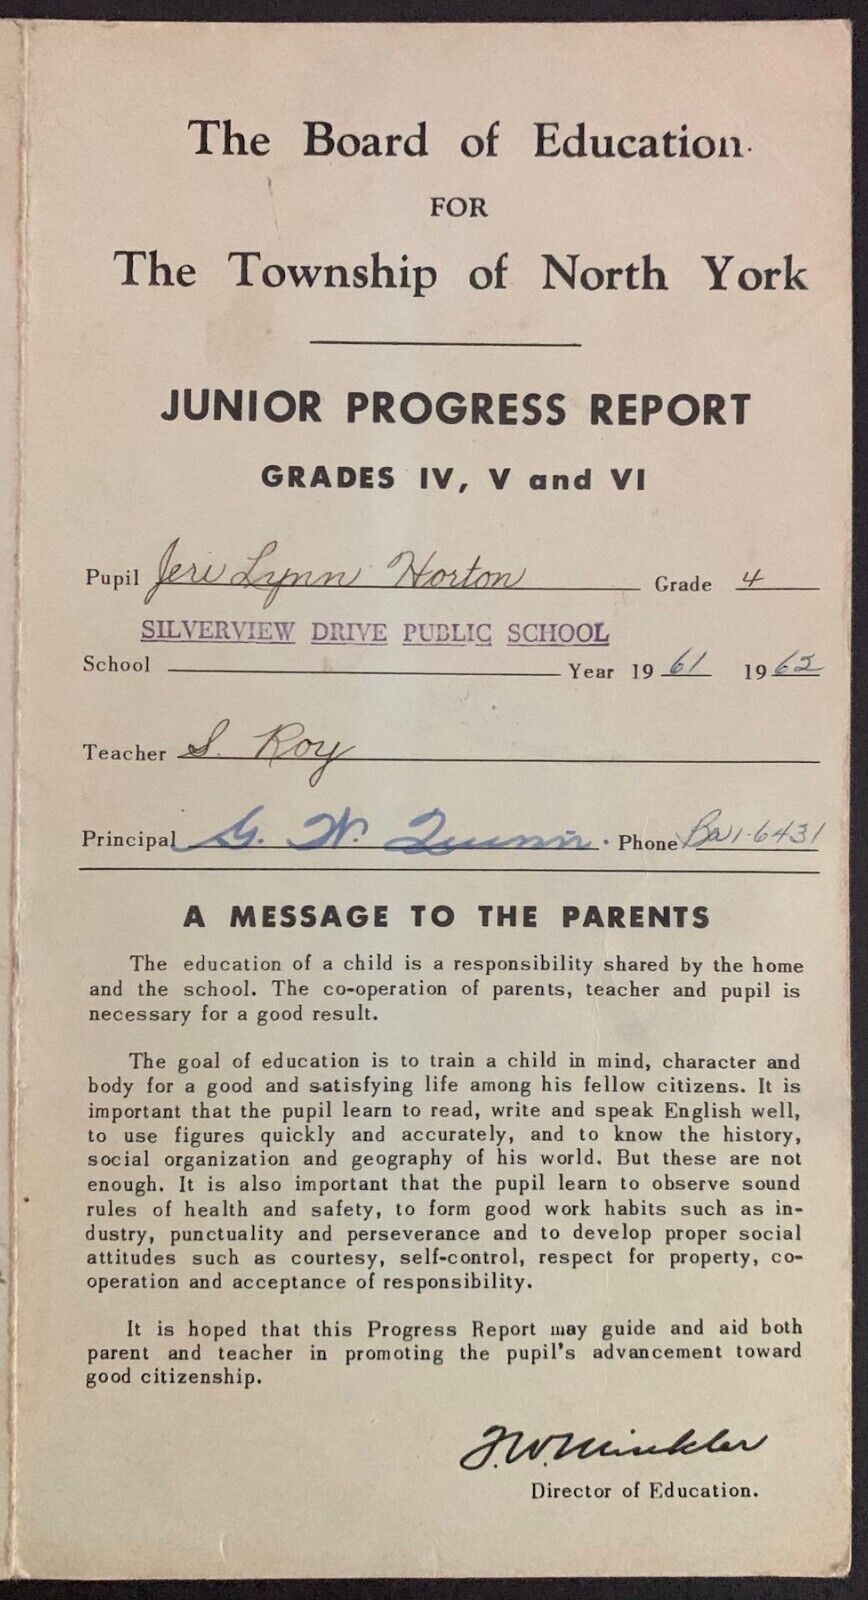 The Board of Education
FOR
The Township of North York
JUNIOR PROGRESS REPORT
GRADES IV, V and VI
Pupil Jeri Lynn Horton Grade 4
SILVERVIEW DRIVE PUBLIC SCHOOL
School Year 1961 1962
Teacher S. Roy
Principal G. W. Quinn. Phone Ba 1-6431
A MESSAGE TO THE PARENTS
The education of a child is a responsibility shared by the home
and the school. The co-operation of parents, teacher and pupil is
necessary for a good result.
The goal of education is to train a child in mind, character and
body for a good and satisfying life among his fellow citizens. It is
important that the pupil learn to read, write and speak English well,
to use figures quickly and accurately, and to know the history,
social organization and geography of his world. But these are not
enough. It is also important that the pupil learn to observe sound
rules of health and safety, to form good work habits such as in-
dustry, punctuality and perseverance and to develop proper social
attitudes such as courtesy, self-control, respect for property, co-
operation and acceptance of responsibility.
It is hoped that this Progress Report may guide and aid both
parent and teacher in promoting the pupil's advancement toward
good citizenship.
F.W. Minkler
Director of Education.